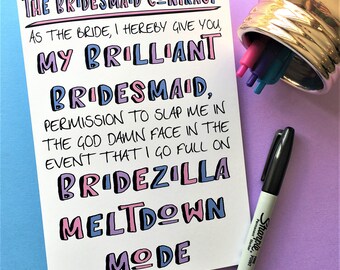 THE BRIDESMAID CONTRACT
AS THE BRIDE, I HEREBY GIVE YOU,
MY BRILLIANT
BRIDESMAID,
PERMISSION TO SLAP ME IN
THE GOD DAMN FACE IN THE
EVENT THAT I GO FULL ON
BRIDEZILLA
MELTDOWN
MODE
Sharpie